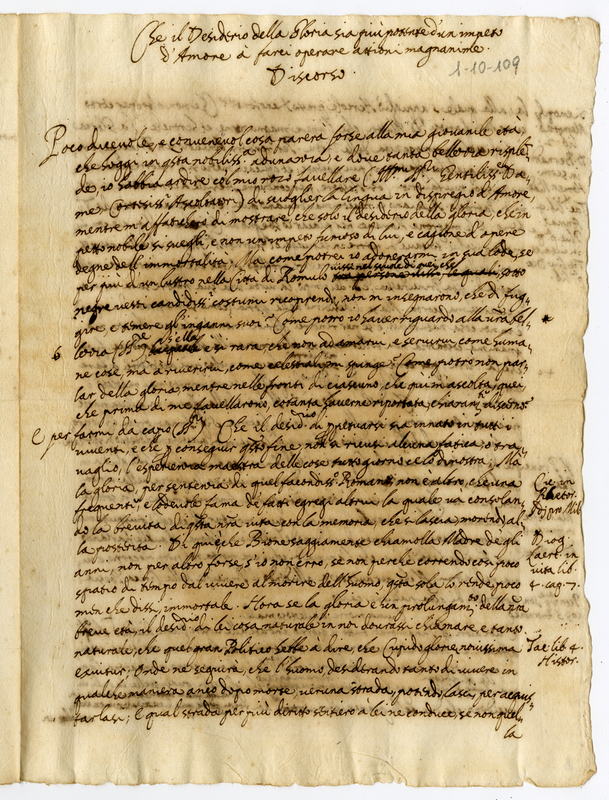 Che il Desiderio della Gloria sia più potente d'un impeto
d'Amore à farci operare attioni magnanime.
Discorso.
1-10-109
Poco dicevole, e convenevol cosa parerà forse alla mia giovanile età,
che hoggi in q.sta nobiliss.a adunanza, e dove tanta
de, io habbia ardire col mio rozo favellare ( Gentiliss.e Da,
me Cortesiss.i Ascoltatori) di scioglier la lingua in dispregio d'Amore,
mentre m'affaticherò di mostrare, che solo il desiderio della gloria, che in
petto nobile si svegli, e non un impeto furioso di lui, è cagione d'opere
degne dell'immortalità. Ma come potrei io adoperarmi in sua lode, se
per più d'un lustro nella Città di Romulo vissi nelle scuole di quei, che sotto
negre vesti candidiss.i costumi ricoprendo, non m'insegnarono, che di fug,
gire, e temere gl'inganni suoi? Come potrò io haver riguardo alla
è si rara, che non ad amarvi, e servirvi come huma,
ne cose, ma à riverirvi, come celestiali ne spinge? Come potrò non par,
lar della gloria mentre nelle fronti di ciascuno, che qui m'ascolta, quei,
che prima di me favellarono, cotanta haverne riportata, chiaram.te discerno?
E per farmi da capo Che il desid.rio di perpetuarsi sia innato in tutti i
viventi, e che p conseguir q.sto fine non si ricusi alcuna fatica, o tra,
vaglio, l'esperienza maestra delle cose tutto giorno ce lo dimostra; Ma
la gloria, per sentenza di quel facondiss.o Romano, non è altro, che una
frequente, e lodevole fama de fatti egregi altrui la quale va consolan,
do la brevità di q.sta n.ra vita con la memoria, che si lascia, morendo, al,
la posterità. Di quì è che Bione saggiamente chiamolla Madre degli
anni, non per altro forse, s'io non erro, se non perche correndo così poco
spatio di tempo dal vivere al morire dell'huomo, q.sta sola lo rende, poco
men che dissi, immortale. Hora se la gloria è un prolungam.to della n.ra
breve età, il desid.rio di lei cosa naturale in noi dovrassi chiamare, e tanto
naturale, che quel gran Politico hebbe à dire, che Cupido gloriæ novissima
exuitur; Onde ne seguirà, che l'huomo, desiderando tanto di vivere in
qualche maniera anco dopo morte, veruna strada, potendo, lasci, per acquis,
tarlasi; E qual strada per più diritto sentiero à lei ne conduce, se non quel,
la
Cic. in
pro Mil.
Diog.
Laert. in
vita lib.
4. cap. 7.
Tac. lib. 4.
Histor.